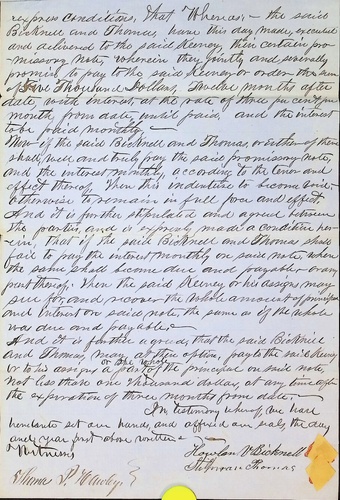 express conditions, that Whereas, the said
Bicknell and Thomas, have this day made, executed
and delivered to the said Keeney, their certain pro-
missory Note, wherein they jointly and severally
promise to pay to the said Keeney or order the sum
of Five Thousand Dollars, Twelve months after
date, with interest, at the rate of three per cent per
month from date until paid; and the interest
to be paid monthly—
Now if the said Bicknell and Thomas, or either of them
shall, well and truly pay the said promissory note,
and the interest monthly, according to the tenor and
effect thereof, Then this indenture to become void—
otherwise to remain in full force and effect.
And it is further stipulated and agreed between
the parties, and is expressly made a condition her-
ein, that if the said Bicknell and Thomas shall
fail to pay the interest monthly on said note, when
the same shall become due and payable or any
part thereof; Then the said Keeney or his assigns, may
sue for, and recover the whole amount of principal
and interest on said note, the same as if the whole
was due and payable—
And it is further agreed, that the said Bicknell
and Thomas, may at their option, pay to the said Keeney
or the whole
or to his assigns, a part of the principal on said note,
not less than one thousand dollars, at any time after
the expiration of three months from date—
In testimony whereof, we have
hereunto set our hands, and affixed our seals the day
and year first above written—
Witness
Bicknell
Thomas